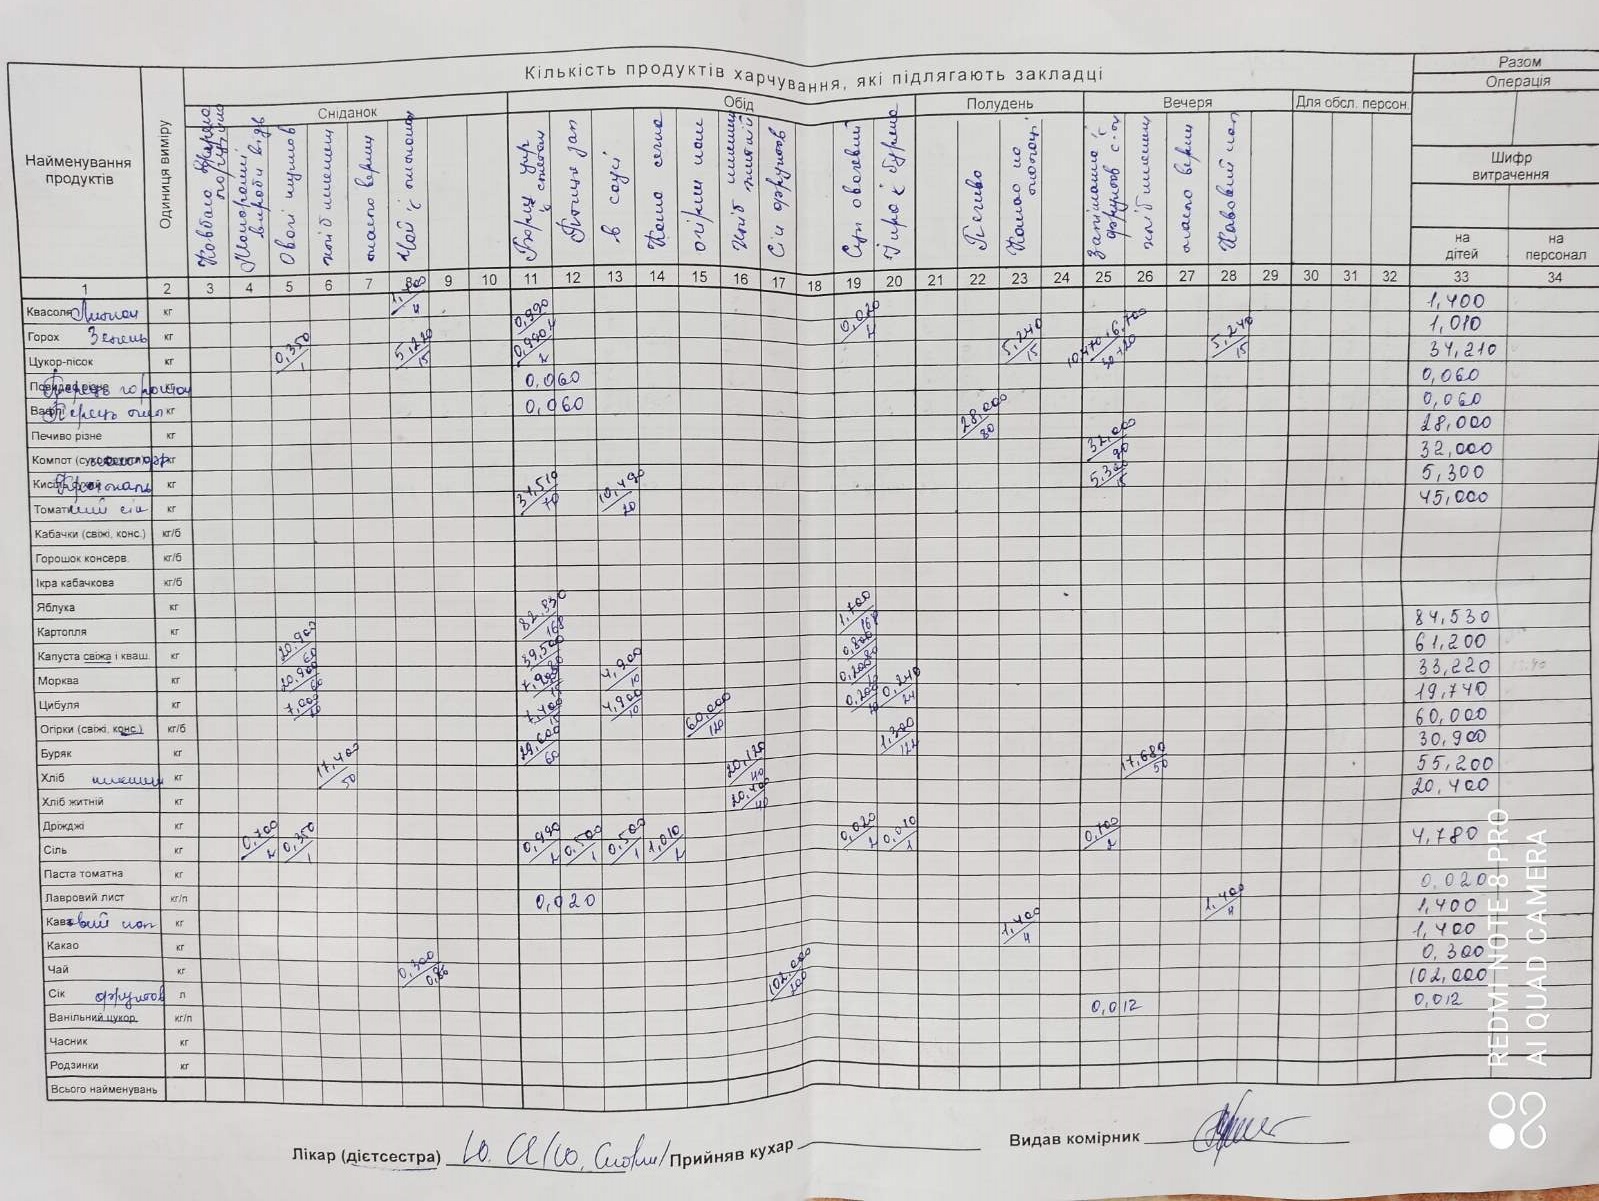 Кількість продуктів харчування, які підлягають закладці
Разом
Операція
Сніданок
Обід
Полудень
Вечеря
Для обсл. персон.
Найменування продуктів
Одиниця виміру
Ковбаса
Макаронні вироби відв
Овочі
хліб пшенич
масло верш
Чай з лимоном
Борщ укр з сметан
Птиця зап
в соусі
Каша
огірки
Хліб пшенич житній
Сік фруктов
Суп овочевий
Пюре з буряка
Печиво
Какао на молоці
Запіканка з фруктов с-ом
хліб пшенич
масло верш
Кавовий нап
Шифр витрачення
на дітей
на персонал
1 2 3 4 5 6 7 8 9 10 11 12 13 14 15 16 17 18 19 20 21 22 23 24 25 26 27 28 29 30 31 32 33 34
Квасоля Лимон кг 1,400/4 0,990 0,020 1,400
Горох Зелень кг 0,990/2 1,010
Цукор-пісок кг 0,350/1 5,220/15 5,240/15 10,470+6,700/30+20 5,240/15 34,210
Перець горошок кг 0,060 0,060
Перець мел кг 0,060 0,060
Печиво різне кг 28,000/80 28,000
Компот (сухофрукти) кг 32,000/90 32,000
Крохмаль кг 5,300/15 5,300
Томатний сік кг 34,510/70 10,490/20 45,000
Кабачки (свіжі, конс.) кг/б
Горошок консерв. кг/б
Ікра кабачкова кг/б
Яблука кг
Картопля кг 82,830/168 1,700/168 84,530
Капуста свіжа і кваш. кг 20,900/60 39,500 0,800 61,200
Морква кг 20,900/60 4,900/10 0,200 33,220
Цибуля кг 7,000/20 7,400 4,900/10 0,200 0,240/24 19,740
Огірки (свіжі, конс.) кг/б 60,000/120 60,000
Буряк кг 29,600/60 1,300/122 30,900
Хліб пшенич кг 17,400/50 20,120/40 17,680/50 55,200
Хліб житній кг 20,400/40 20,400
Дріжджі кг
Сіль кг 0,700/2 0,350/1 0,990/2 0,500/1 0,500/1 1,010/2 0,020/2 0,010/1 0,700/2 4,780
Паста томатна кг
Лавровий лист кг/п 0,020 0,020
Кавовий нап кг 1,400/4 1,400
Какао кг 1,400/4 1,400
Чай кг 0,300 0,300
Сік фруктов л 102,000/200 102,000
Ванільний цукор кг/п 0,012 0,012
Часник кг
Родзинки кг
Всього найменувань
Лікар (дієтсестра)
Прийняв кухар
Видав комірник
REDMI NOTE 8 PRO
AI QUAD CAMERA